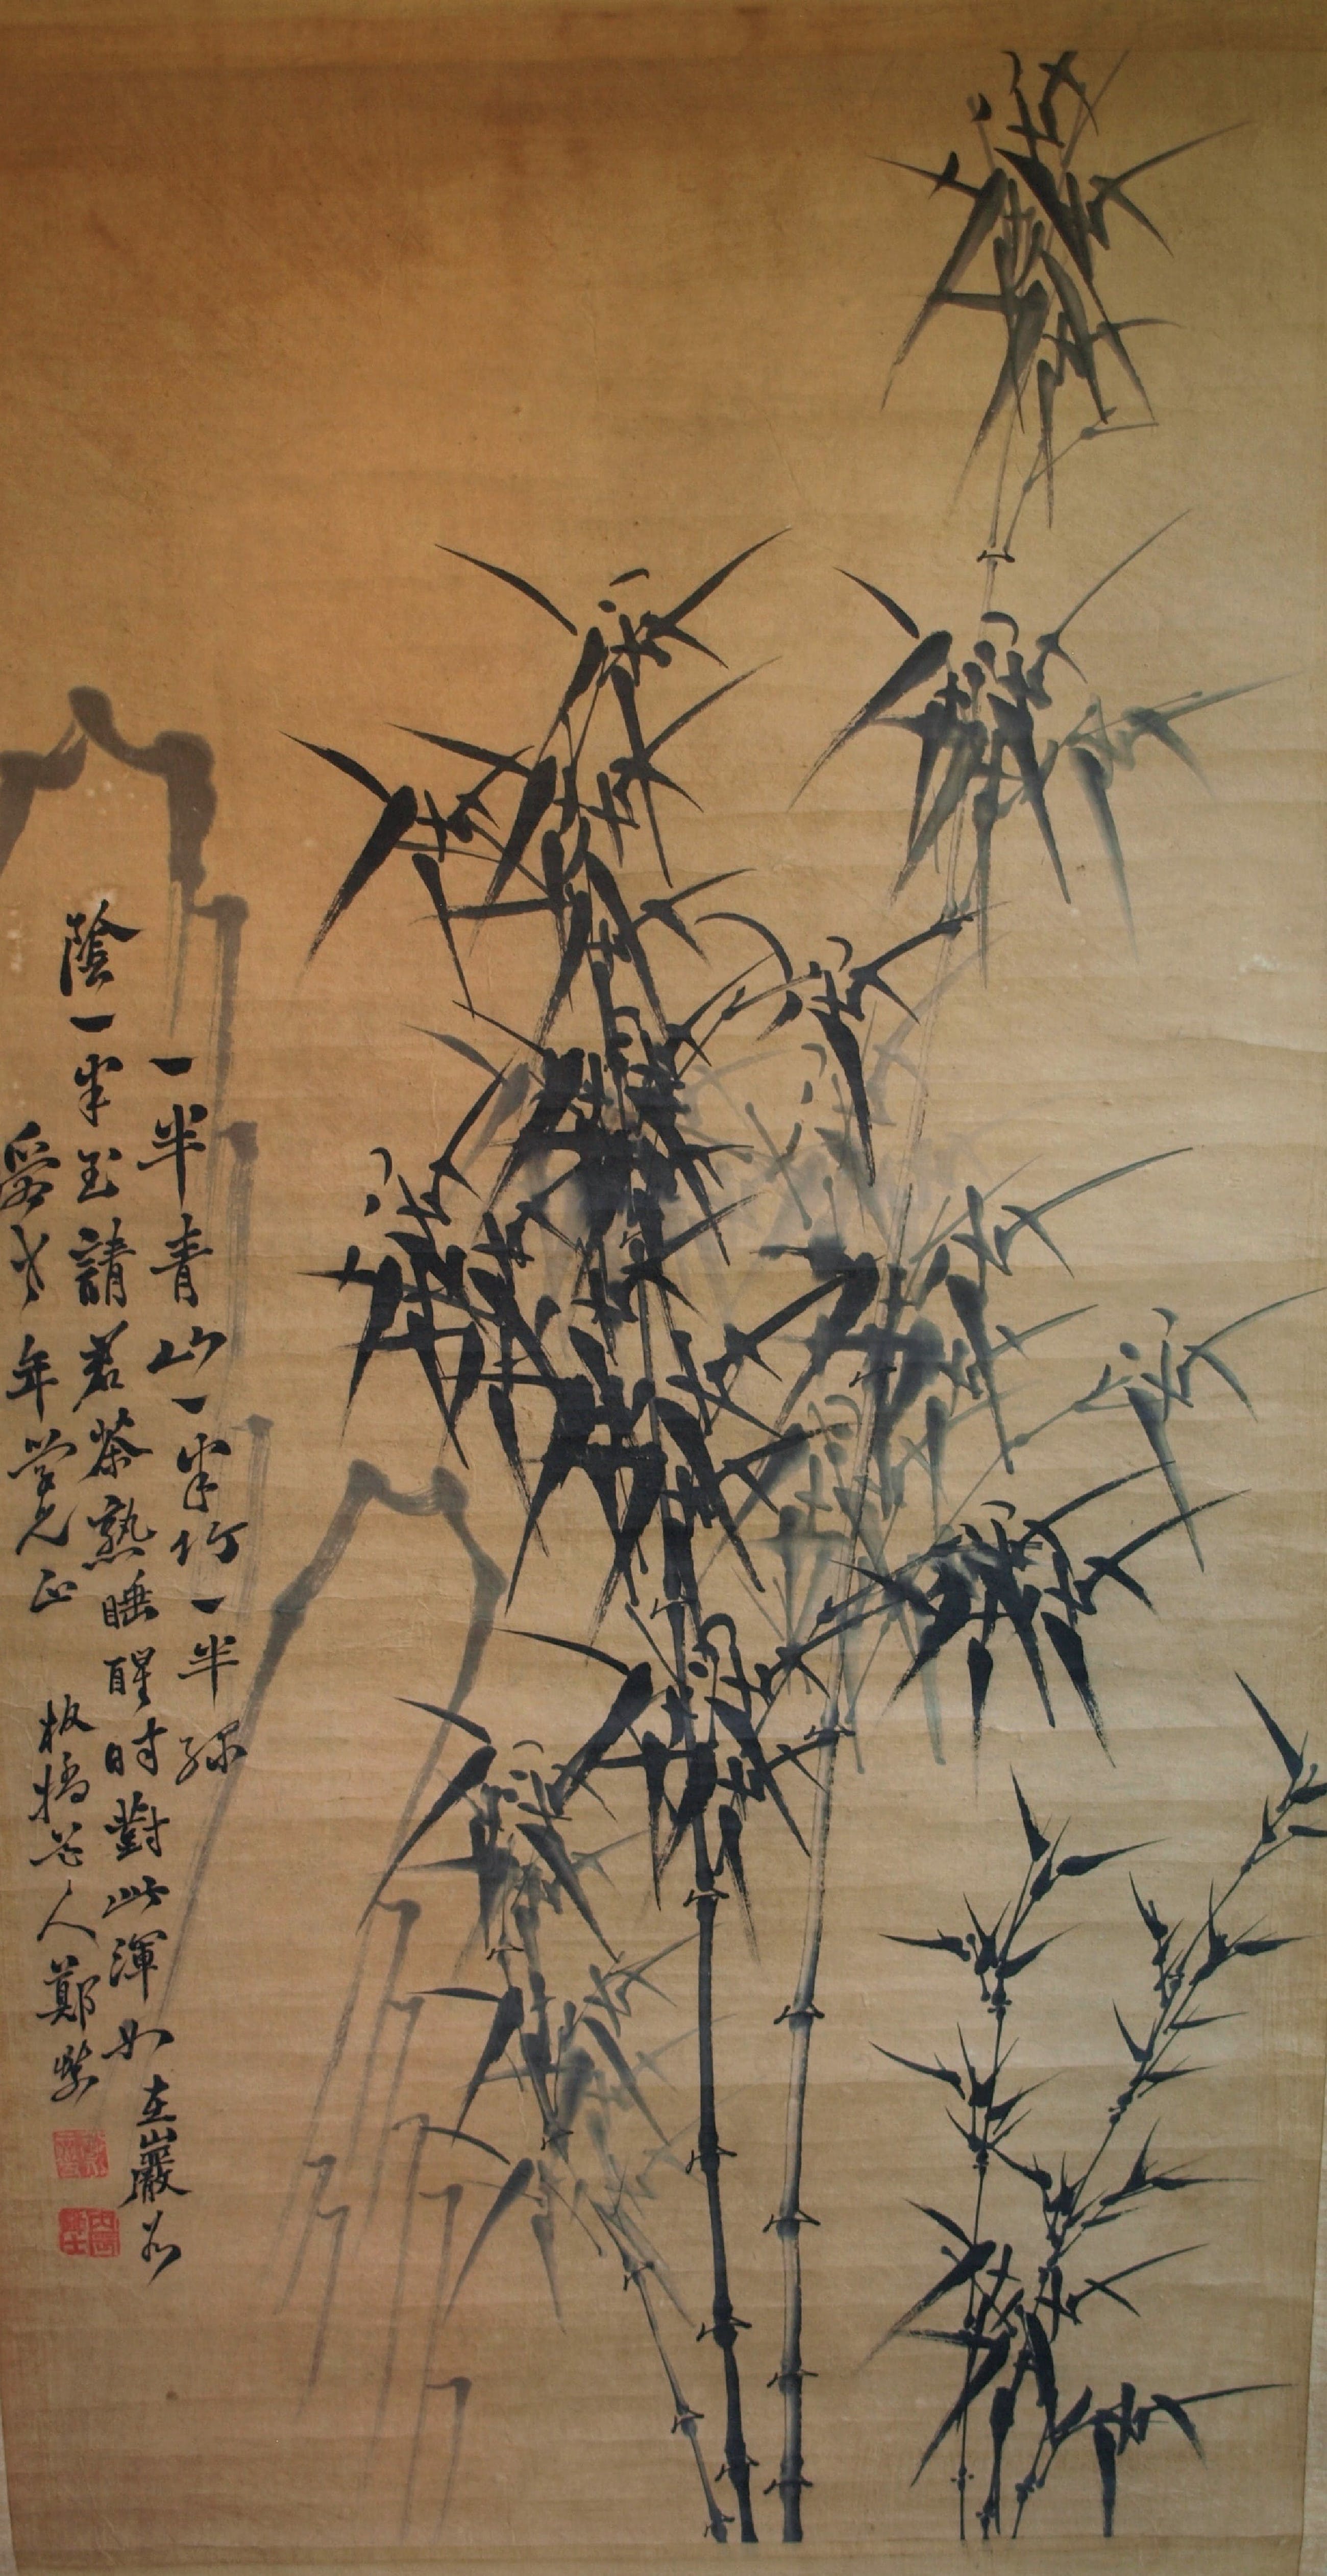 一半青山一半竹一半綠
陰一半玉請君茶熟睡醒時對此渾如在巖谷
年學兄正 板橋老人鄭燮